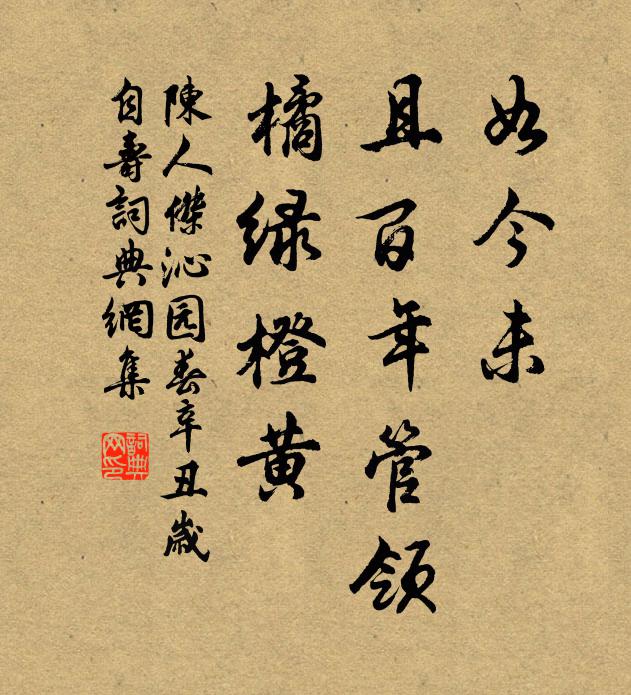 如今未
且百年管领
橘绿橙黄
陳人傑沁园春辛丑歲
自壽詞典網集
詞典网印